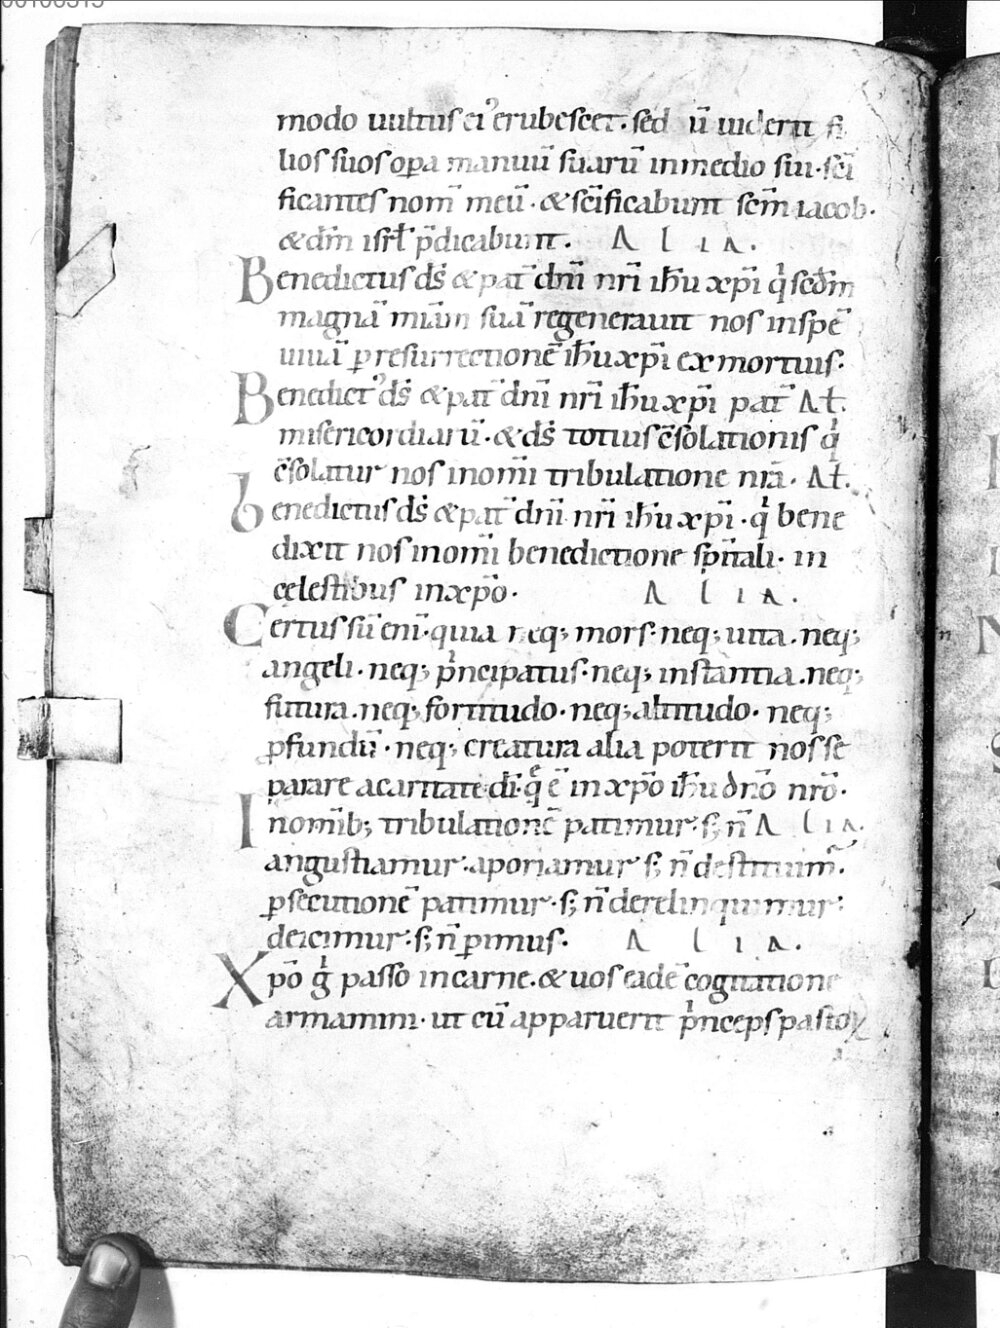 modo uultus ei᾽ erubescet. sed ū uiderit fi
lios suos opa manuū suarū inmedio sui. sc̄i
ficantes nom̄ meū. & sc̄ificabunt sc̄m iacob.
& dm̄ isrl̄ p̄dicabunt. A l i a.
Benedictus ds̄ & pat̄ dn̄i nr̄i ih̄u xp̄i qͥ sedm̄
magnā miām suā regenerauit nos inspē
uiuā ꝑ resurrectionē ih̄u xp̄i ex mortuis.
Benedict᾽ ds̄ & pat̄ dn̄i nr̄i ih̄u xp̄i pat̄ Aƚ.
misericordiarū. & ds̄ totius c̄solationis qͥ
c̄solatur nos inom̄i tribulatione nr̄a. Aƚ.
benedictus ds̄ & pat̄ dn̄i nr̄i ih̄u xp̄i. qͥ bene
dixit nos inom̄i benedictione sp̄itali. in
cęlestibus inxp̄o. A l i a.
Certus sū eni̅. quia neq; mors. neq; uita. neq;
angeli. neq; pͥncipatus. neq; instantia. neq;
futura. neq; fortitudo. neq; altitudo. neq;
ꝓfundū. neq; creatura alia poterit nos se
parare acaritate dī. q̄ ē inxp̄o ih̄u dn̄o nr̄o.
Inom̄ib; tribulationē patimur. s; n̄ A l i a.
angustiamur. aporiamur s; n̄ destituim᾽.
ꝑsecutionē patimur. s; n̄ derelinquimur.
deicimur. s; n̄ ꝑimus. A l i a.
Xp̄o gͥ passo incarne. & uos eadē cogitatione
armamini. ut cū apparuerit pͥnceps pastoꝝ